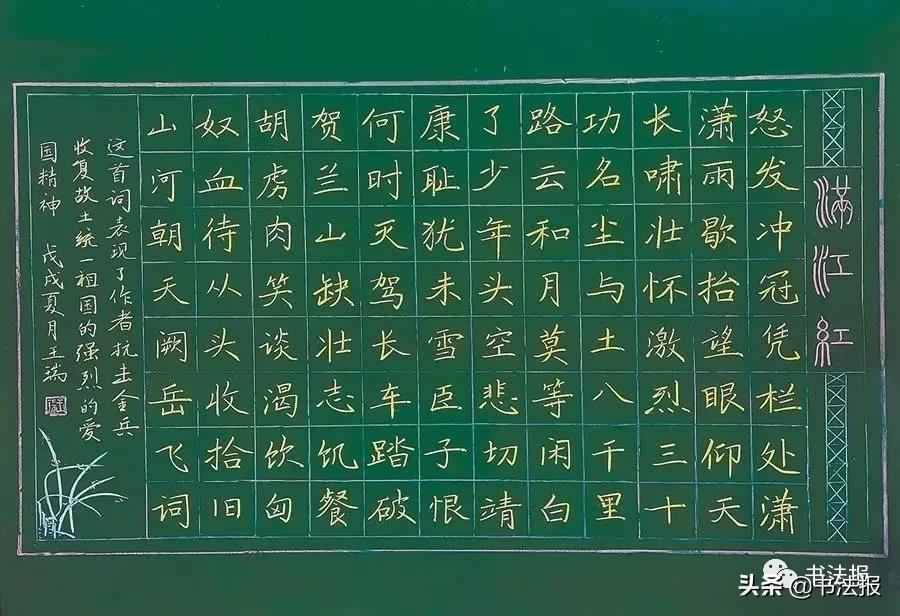 滿江紅
怒发冲冠凭栏处潇
潇雨歇抬望眼仰天
长啸壮怀激烈三十
功名尘与土八千里
路云和月莫等闲白
了少年头空悲切靖
康耻犹未雪臣子恨
何时灭驾长车踏破
贺兰山缺壮志饥餐
胡虏肉笑谈渴饮匈
奴血待从头收拾旧
山河朝天阙岳飞词
这首词表现了作者抗击金兵
收复故土统一祖国的强烈的爱
国精神 戊戌夏月王瑞
书法报
头条@书法报